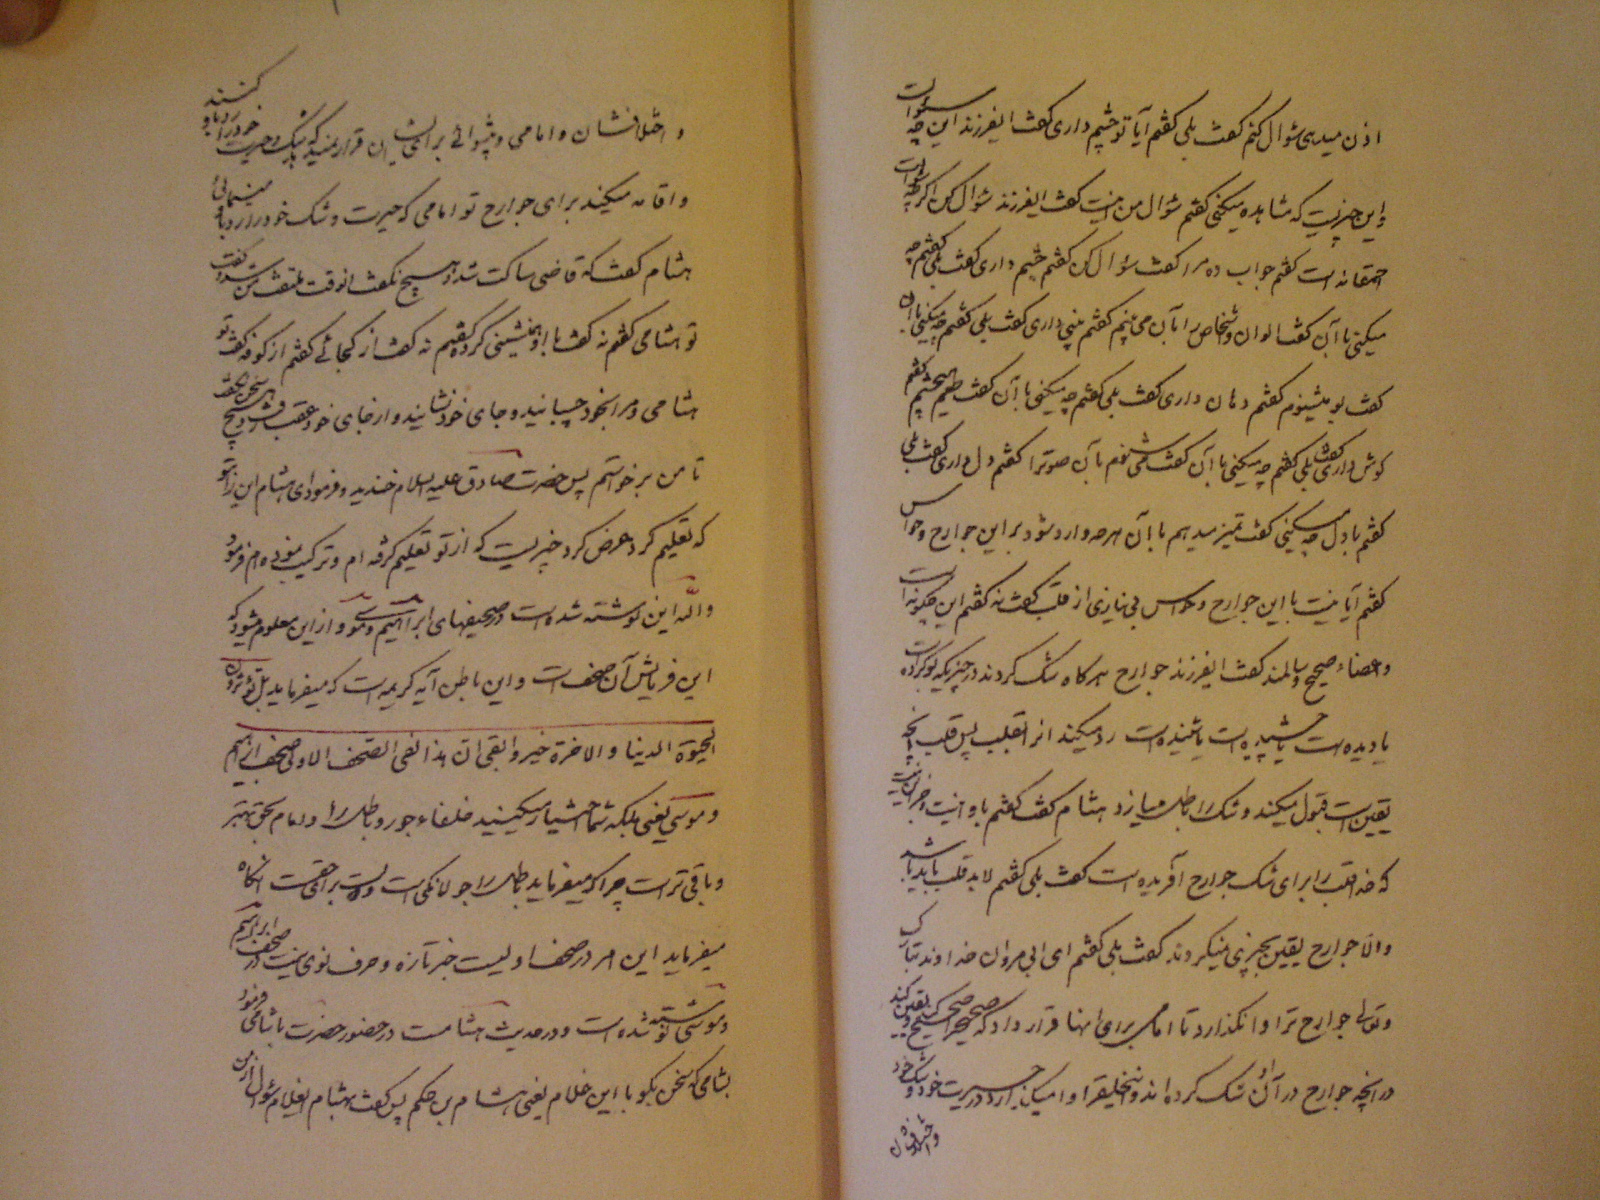 اذن میدهی سؤال کنم گفت بلی گفتم آیا تو چشم داری گفت ایفرزند این چه سؤالیست
و این چیزیست که مشاهده میکنی گفتم سؤال من اینست گفت ایفرزند سؤال کن اگرچه سؤالت
احمقانه است گفتم جواب ده مرا گفت سؤال کن گفتم چشم داری گفت بلی گفتم چه
میکنی با آن گفت الوان و اشخاص را با آن می بینم گفتم بینی داری گفت بلی گفتم چه میکنی با آن
گفت بو میشنوم گفتم دهان داری گفت بلی گفتم چه میکنی با آن گفت طعم میچشم گفتم
گوش داری گفت بلی گفتم چه میکنی با آن گفت میشنوم با آن صوترا گفتم دل داری گفت بلی
گفتم با دل چه میکنی گفت تمیز میدهم با آن هرچه وارد شود بر این جوارح و حواس
گفتم آیا نیست با این جوارح و حواس بی نیازی از قلب گفت نه گفتم این چگونه است
و اعضاء صحیح و سالمند گفت ایفرزند جوارح هرگاه شک کردند در چیزیکه بو کرده
یا دیده است یا چشیده است یا شنیده است رد میکنند انرا بقلب پس قلب آنچه
یقین است قبول میکند و شک را باطل میسازد هشام گفت گفتم باو اینست و جز این نیست
که خدا قلب را برای شک جوارح آفریده است گفت بلی گفتم لابد قلب باید باشد
والا جوارح یقین بچیزی نمیکردند گفت بلی گفتم ای ابی مروان خداوند تبارک
و تعالی جوارح ترا وانگذارد تا امامی برای انها قرار داد که صحیح را تصحیح کند و یقین کند
در انچه جوارح در آن شک کرده اند و این خلیق را وا میگذارد در حیرت خود و شک خود
و اختلافشان
و اختلافشان و امامی و پیشوائی برای ایشان قرار نمیدهد که شک و حیرت خود را رد باو کنند
و اقامه میکند برای جوارح تو امامی که حیرت و شک خود را رد باو مینمائی
هشام گفت که قاضی ساکت شد و هیچ نگفت انوقت ملتفت من شد و گفت
تو هشامی گفتم نه گفت با او همنشینی کرده گفتم نه گفت از کجائی گفتم از کوفه گفت تو
هشامی و مرا بخود چسبانید و جای خود نشانید و از جای خود عقب رفت و هیچ سخن نگفت
تا من برخواستم پس حضرت صادق علیه السلام خندید و فرمود ای هشام این را بتو
که تعلیم کرد عرض کرد چیزیست که از تو تعلیم گرفته ام و ترکیب نموده ام فرمود
والله این نوشته شده است در صحیفهای ابراهیم و موسی و از این معلوم میشود که
این فرمایش آن صحف است و این باطن آیه کریمه است که میفرماید بل تؤثرون
الحیوة الدنیا والاخرة خیر وابقی ان هذا لفی الصحف الاولی صحف ابراهیم
و موسی یعنی بلکه شما اختیار میکنید خلفاء جور و باطل را و امام بحق بهتر
و باقی تر است چرا که میفرماید باطل را جولانکی است و دولت برای حق است انگاه
میفرماید این امر در صحف اولیست خبر تازه و حرف نوی نیست در صحف ابراهیم
و موسی نوشته شده است و در حدیث هشامست در حضور حضرت با شامی فرمود
بشامی که سخن بگو با این غلام یعنی هشام بن حکم پس گفت بهشام ایغلام سؤال از من